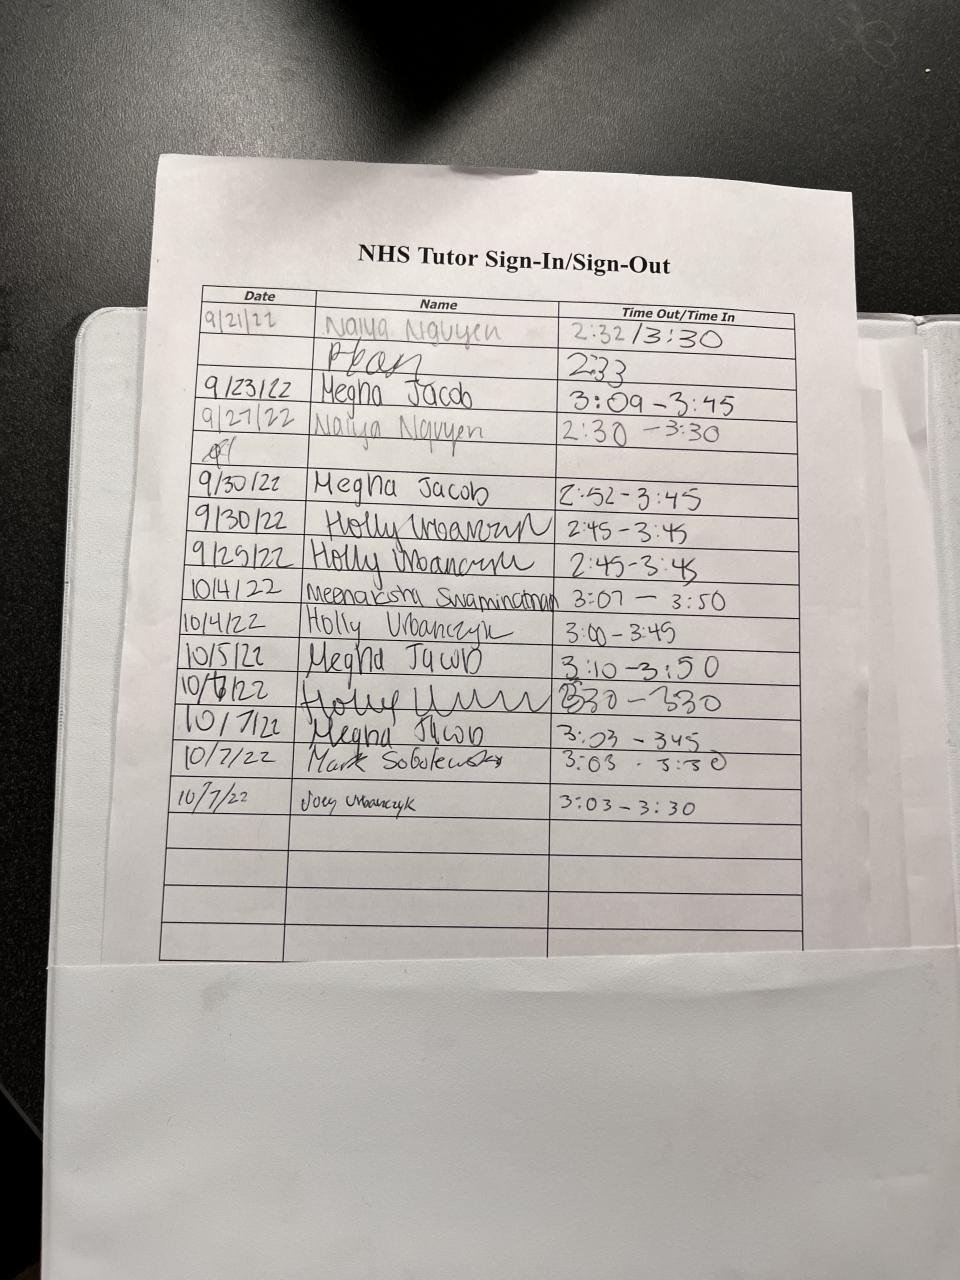 NHS Tutor Sign-In/Sign-Out
Date Name Time Out/Time In
9/21/22 Naiya Nguyen 2:32/3:30
2:33
9/23/22 Megna Jacob 3:09-3:45
9/27/22 Naiya Nguyen 2:30-3:30
9/30/22 Megna Jacob 2:52-3:45
9/30/22 Holly Urbanczyk 2:45-3:45
Holly Urbanczyk 2:45-3:45
10/4/22 Swaminathan 3:07 - 3:50
10/4/22 Holly Urbanczyk 3:00-3:45
10/5/22 Megna Jacob 3:10-3:50
10/7/22 Megna Jacob 3:03 - 345
10/7/22 Mark Sobolewski 3:03 - 3:30
10/7/22 Joey Urbanczyk 3:03-3:30